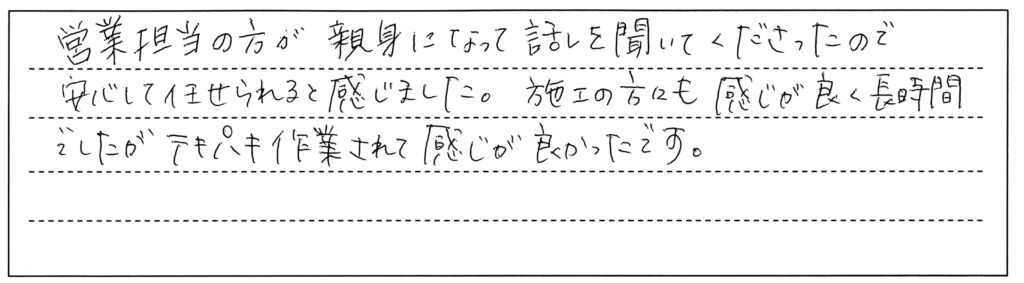 営業担当の方が親身になって話しを聞いてくださったので
安心して任せられると感じました。施工の方にも感じが良く長時間
でしたがテキパキ作業されて感じが良かったです。